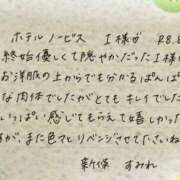 ホテルノービス I様が R8.
終始優しくて穏やかだったI様
お洋服の上からでも分かるぱんぱん
な肉体でしたがとてもキレイでした
いっぱい感じてもらえて嬉しかっ
すが、また色々とリベンジさせてくださいね
新塚 すみれ